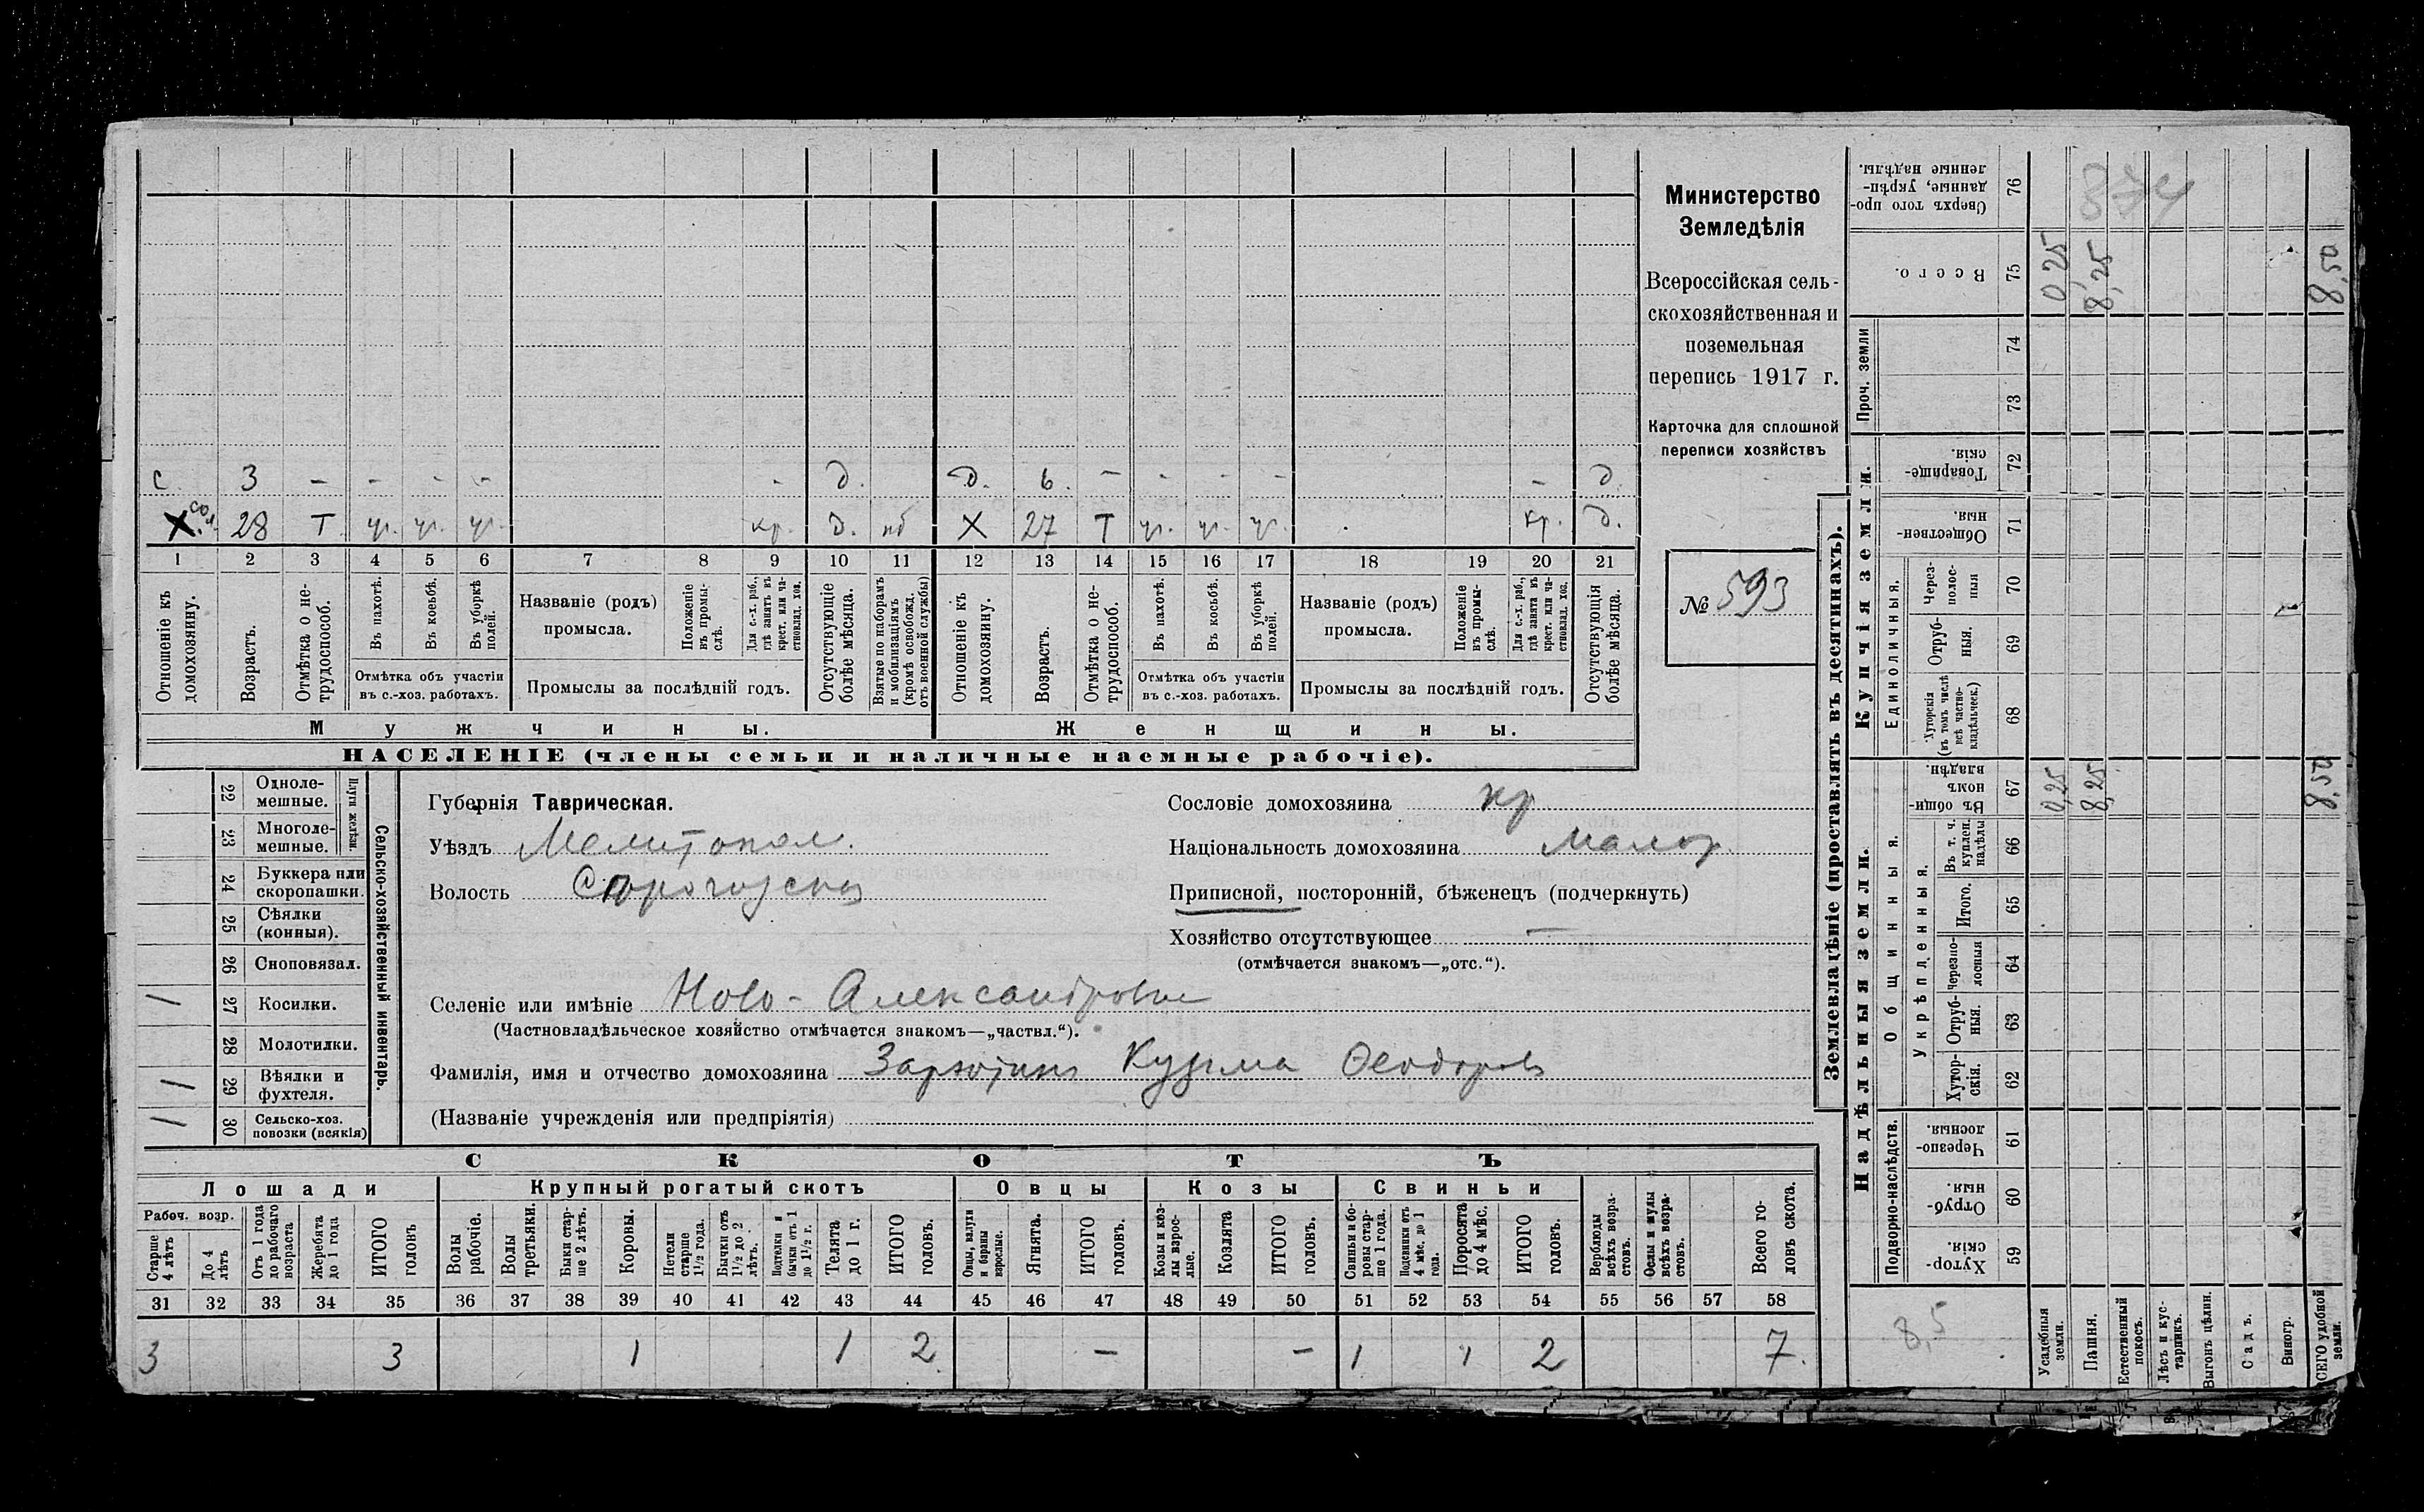 Министерство
Земледѣлія
Всероссійская сель-
скохозяйственная и
поземельная
перепись 1917 г.
Карточка для сплошной
переписи хозяйствъ
№ 593
с 3 - - - - - д. д. 6. - - - - - д.
Х 28 Т уч. уч. уч. кр. д. нб Х 27 Т уч. уч. уч. кр. д.
1 2 3 4 5 6 7 8 9 10 11 12 13 14 15 16 17 18 19 20 21
Отношеніе къ домохозяину.
Возрастъ.
Отмѣтка о не-трудоспособ.
Въ пахотѣ.
Въ косьбѣ.
Въ уборкѣ полей.
Отмѣтка объ участіи
въ с.-хоз. работахъ.
Названіе (родъ)
промысла.
Положеніе въ промы-слѣ.
Для с.-х. раб., гдѣ занятъ въ крест. или ча-стновлад. хоз.
Промыслы за послѣдній годъ.
Отсутствующіе болѣе мѣсяца.
Взятые по наборамъ и мобилизаціямъ (кромѣ освобожд. отъ военной службы)
Отношеніе къ домохозяину.
Возрастъ.
Отмѣтка о не-трудоспособ.
Въ пахотѣ.
Въ косьбѣ.
Въ уборкѣ полей.
Отмѣтка объ участіи
въ с.-хоз. работахъ.
Названіе (родъ)
промысла.
Положеніе въ промы-слѣ.
Для с.-х. раб., гдѣ занята въ крест. или ча-стновлад. хоз.
Промыслы за послѣдній годъ.
Отсутствующія болѣе мѣсяца.
Мужчины. Женщины.
НАСЕЛЕНІЕ (члены семьи и наличные наемные рабочіе).
Сельско-хозяйственный инвентарь.
Плуги желѣзн.
22 Одноле-мешные.
23 Многоле-мешные.
24 Буккера или скоропашки.
25 Сѣялки (конныя).
26 Сноповязал.
1 27 Косилки.
28 Молотилки.
1 29 Вѣялки и фухтеля.
1 30 Сельско-хоз. повозки (всякія)
Губернія Таврическая.
Уѣздъ Мелитопол.
Волость
Сословіе домохозяина кр
Національность домохозяина Малор.
Приписной, посторонній, бѣженецъ (подчеркнуть)
Хозяйство отсутствующее —
(отмѣчается знакомъ—„отс.“).
Селеніе или имѣніе Ново-Александровка
(Частновладѣльческое хозяйство отмѣчается знакомъ—„частвл.“).
Фамилія, имя и отчество домохозяина Кузьма Ѳеодоровъ
(Названіе учрежденія или предпріятія)
СКОТЪ
Лошади Крупный рогатый скотъ Овцы Козы Свиньи
Рабоч. возр.
Старше 4 лѣтъ
До 4 лѣтъ
Отъ 1 года до рабочаго возраста
Жеребята до 1 года
ИТОГО головъ
Волы рабочіе.
Волы третьяки.
Быки стар-ше 2 лѣтъ.
Коровы.
Нетели старше 1½ года.
Бычки отъ 1½ до 2 лѣтъ.
Подтелки и бычки отъ 1 до 1½ г.
Телята до 1 г.
ИТОГО головъ.
Овцы, валухи и бараны взрослые.
Ягнята.
ИТОГО головъ.
Козы и коз-лы взрос-лые.
Козлята
ИТОГО головъ.
Свиньи и бо-ровы стар-ше 1 года.
Подсвинки отъ 4 мѣс. до 1 года.
Поросята до 4 мѣс.
ИТОГО головъ.
Верблюды всѣхъ возра-стовъ.
Ослы и мулы всѣхъ возра-стовъ.
Всего го-ловъ скота.
31 32 33 34 35 36 37 38 39 40 41 42 43 44 45 46 47 48 49 50 51 52 53 54 55 56 57 58
3 3 1 1 2 — — 1 1 2 7.
Землевладѣніе (проставлять въ десятинахъ).
Надѣльныя земли. Купчія земли. Проч. земли
Подворно-наслѣдств.
Общинныя.
Укрѣпленныя.
Единоличныя.
59 Хутор-скія.
60 Отруб-ныя.
61 Черезпо-лосныя.
62 Хутор-скія.
63 Отруб-ныя.
64 Черезпо-лосныя
65 Итого.
66 Въ т. ч. куплен. надѣлы
67 Въ общин-номъ владѣн.
68 Хуторскія (въ томъ числѣ всѣ частно-владѣльческ.)
69 Отруб-ныя.
70 Через-полос-ныя
71 Обществен-ныя.
72 Товарище-скія.
73
74
75 Всего.
76 Сверхъ того про-данные, укрѣп-ленные надѣлы.
Усадебныя земли. 0,25 0,25
Пашня. 8,25 8,25
Естественный покосъ.
Лѣсъ и кус-тарникъ.
Выгонъ цѣлин.
Садъ.
Виногр.
ВСЕГО удобной земли. 8,50 8,50
8,5
874